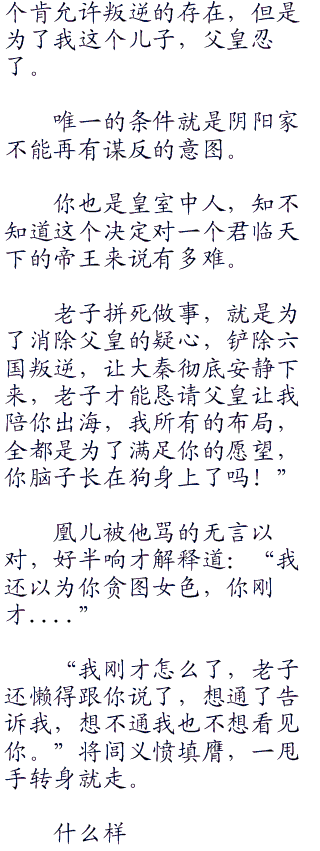 个肯允许叛逆的存在，但是
为了我这个儿子，父皇忍
了。
唯一的条件就是阴阳家
不能再有谋反的意图。
你也是皇室中人，知不
知道这个决定对一个君临天
下的帝王来说有多难。
老子拼死做事，就是为
了消除父皇的疑心，铲除六
国叛逆，让大秦彻底安静下
来，老子才能恳请父皇让我
陪你出海，我所有的布局，
全都是为了满足你的愿望，
你脑子长在狗身上了吗！”
凰儿被他骂的无言以
对，好半响才解释道：“我
还以为你贪图女色，你刚
才....”
“我刚才怎么了，老子
还懒得跟你说了，想通了告
诉我，想不通我也不想看见
你。”将闾义愤填膺，一甩
手转身就走。
什么样